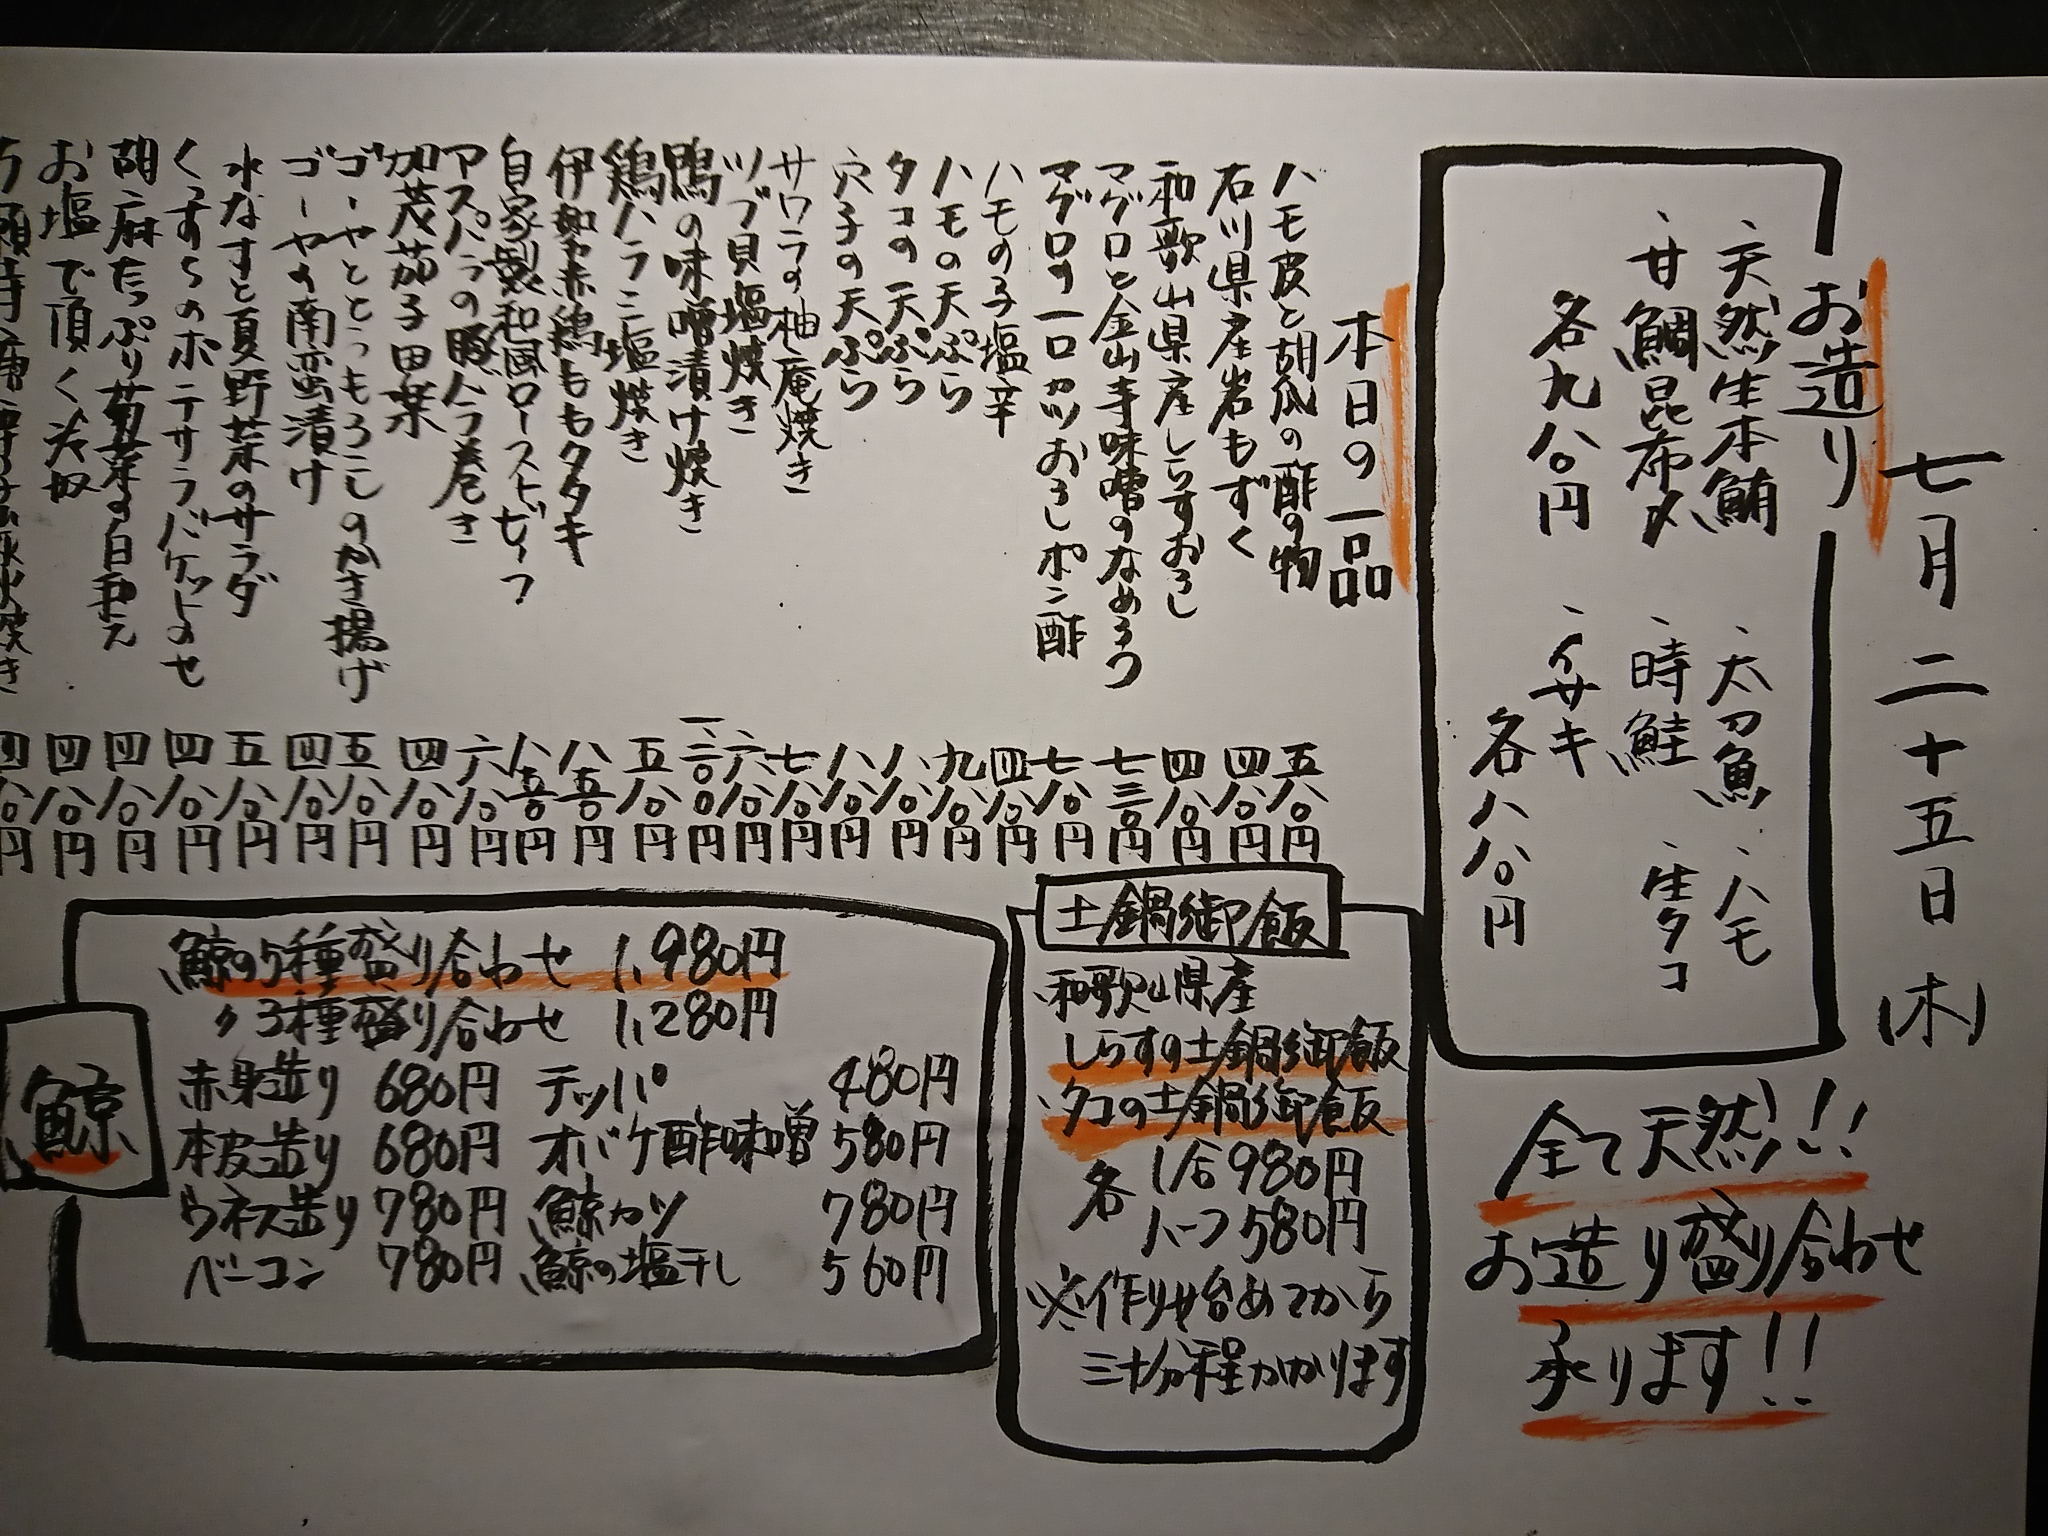 七月二十五日(木)
お造り
、天然生本鮪 、太刀魚 、ハモ
、甘鯛昆布〆 、時鮭 、生タコ
各九八〇円 、イサキ
各八八〇円
全て天然!!
お造り盛り合わせ
承ります!!
本日の一品
ハモ皮と胡瓜の酢の物 五八〇円
石川県産岩もずく 四八〇円
和歌山県産しらすおろし 四八〇円
マグロと金山寺味噌のなめろう 七三〇円
マグロの一口カツおろしポン酢 七八〇円
ハモの子塩辛 四八〇円
ハモの天ぷら 九八〇円
タコの天ぷら 八八〇円
穴子の天ぷら 八八〇円
サワラの柚庵焼き 七八〇円
ツブ貝塩焼き 六八〇円
鴨の味噌漬け焼き 一、二〇〇円
鶏ハラミ塩焼き 五八〇円
伊勢赤鶏ももタタキ 八五〇円
自家製和風ローストビーフ 八五〇円
アスパラの豚バラ巻き 六八〇円
加茂茄子田楽 四八〇円
ゴーヤととうもろこしのかき揚げ 五八〇円
ゴーヤの南蛮漬け 四八〇円
水なすと夏野菜のサラダ 五八〇円
くんすらのポテサラバケットのせ 四八〇円
胡麻たっぷり菊菜の白和え 四八〇円
お塩で頂く 四八〇円
四八〇円
土鍋御飯
和歌山県産
しらすの土鍋御飯
タコの土鍋御飯
各 1合980円
ハーフ580円
※作り始めてから
三十分程かかります
鯨
鯨の5種盛り合わせ 1,980円
〃 3種盛り合わせ 1,280円
赤身造り 680円 テッパ 480円
本皮造り 680円 オバケ酢味噌 580円
ウネス造り 780円 鯨カツ 780円
ベーコン 780円 鯨の塩干し 560円